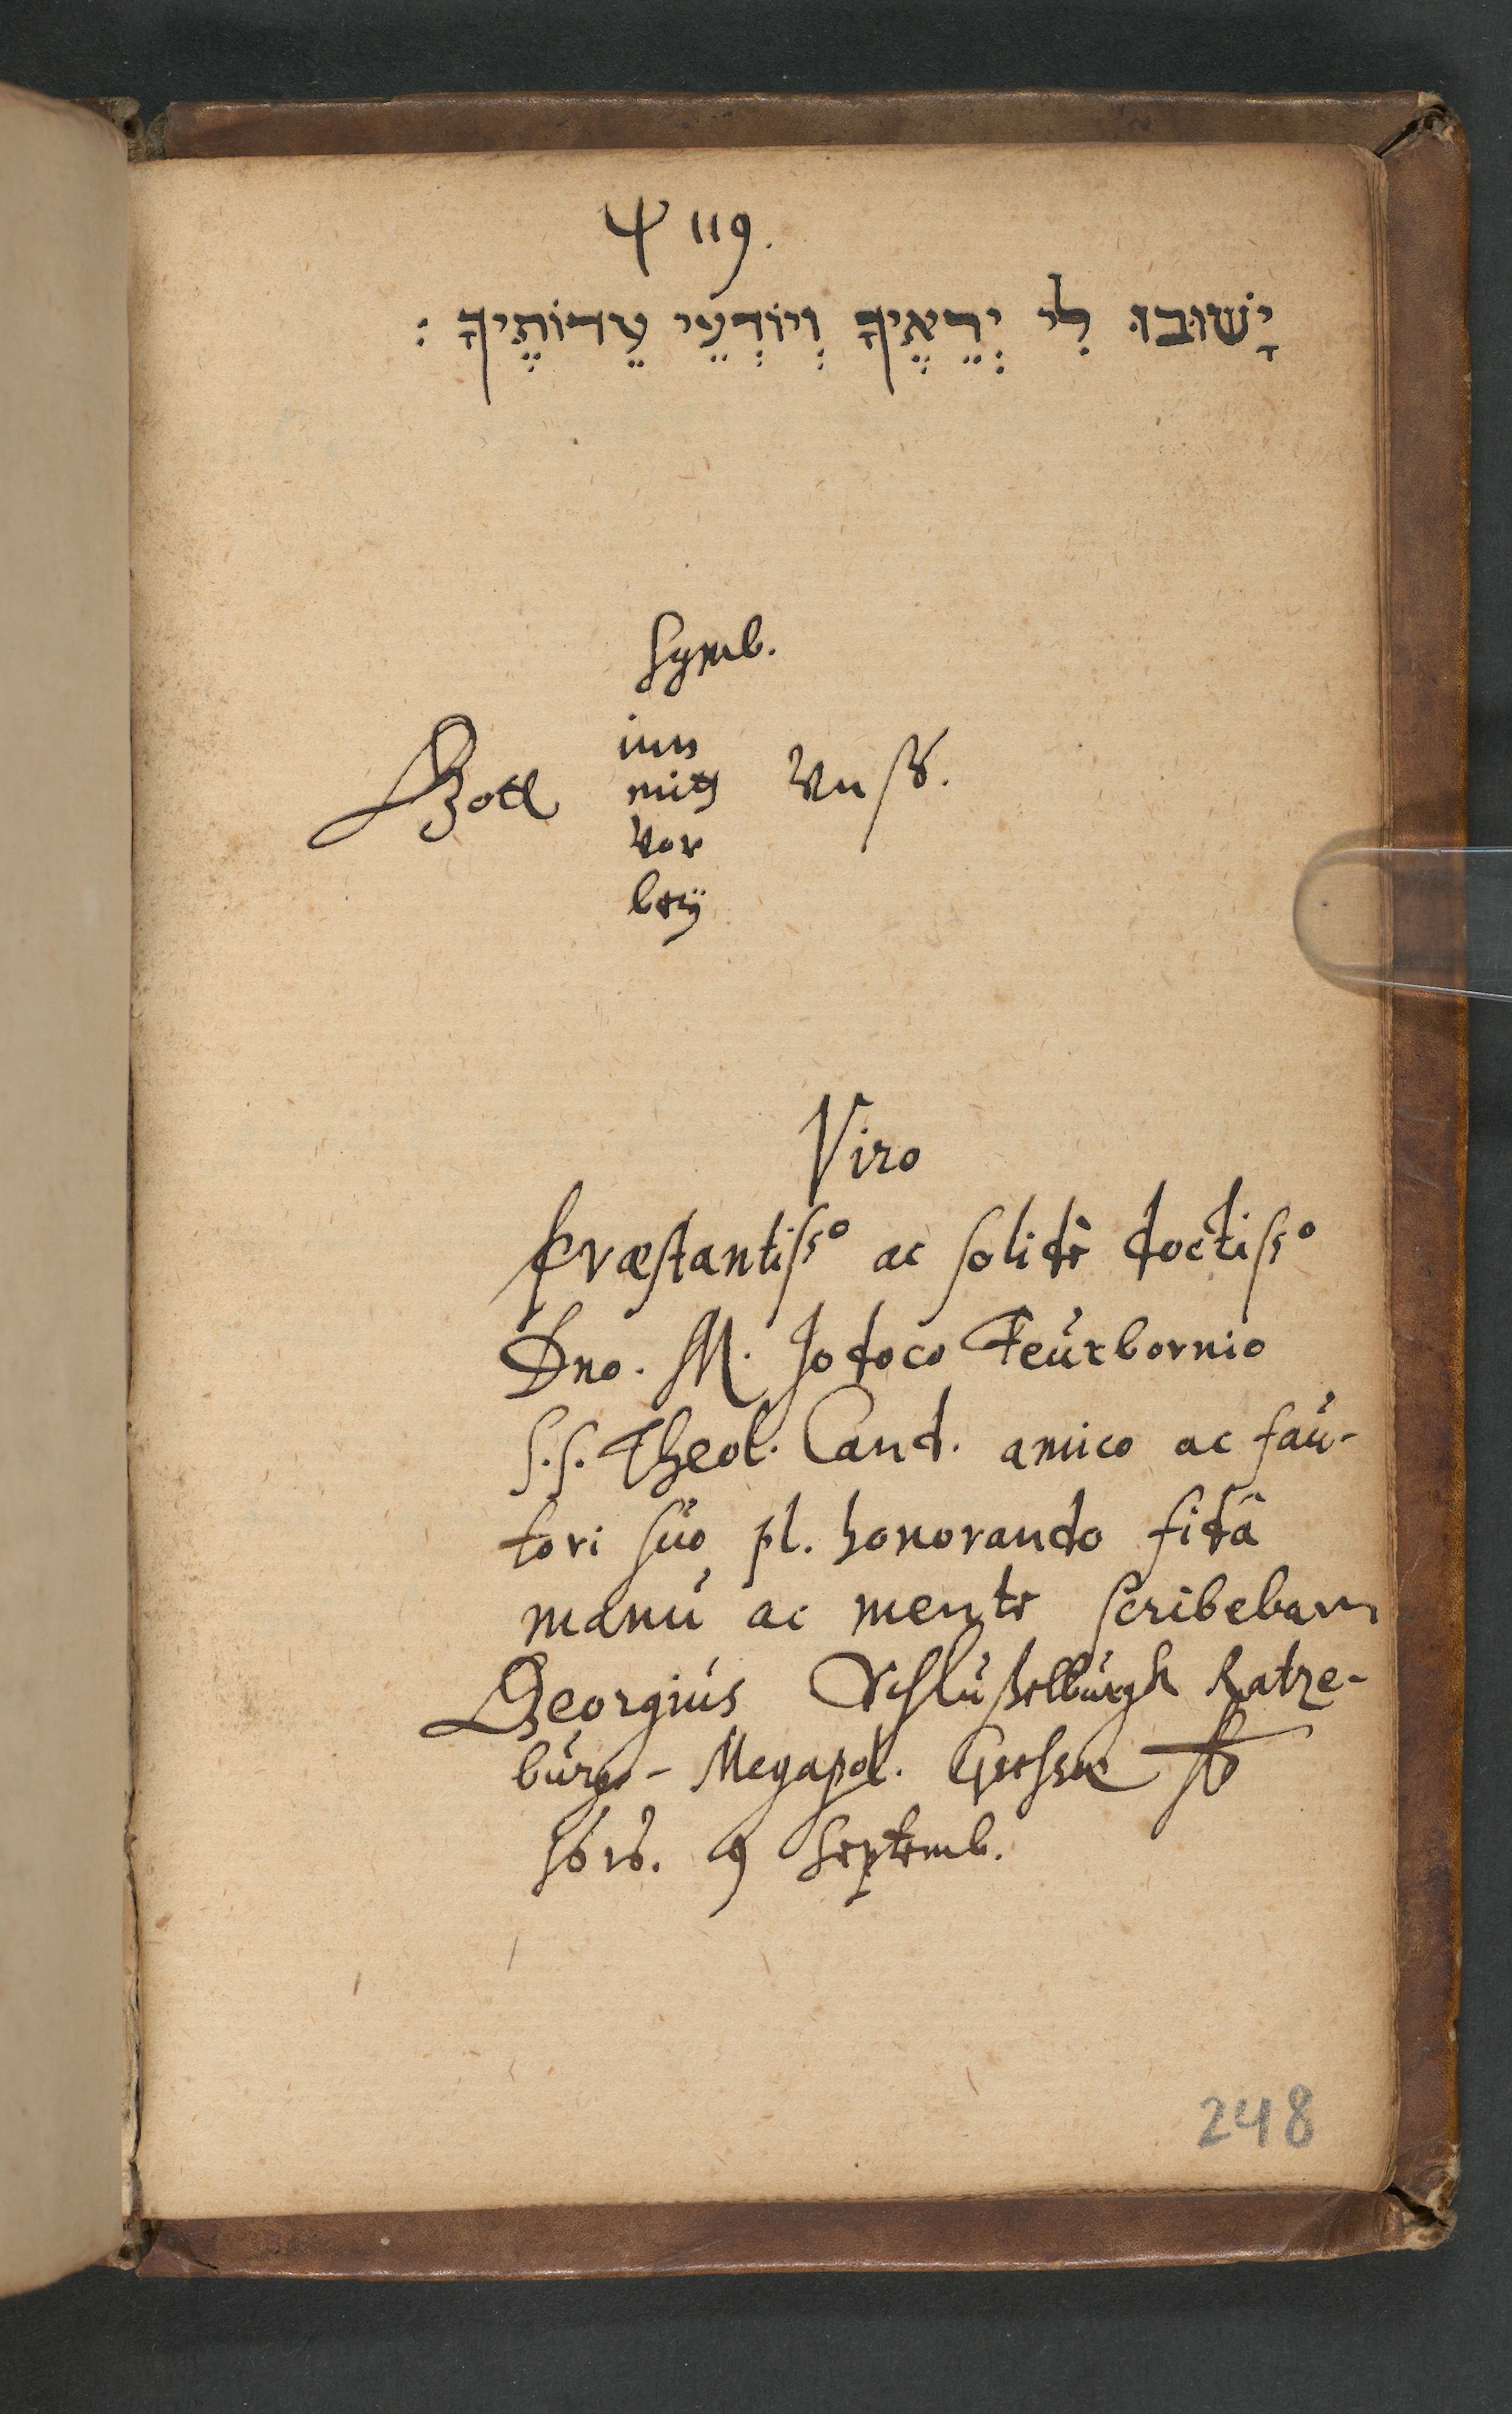 Ψ 119.
יָשׁוּבוּ לִי יְרֵאֶיךָ וְיוֹדְעֵי עֵדוֹתֶיךָ :
Symb.
Gott
inn
mitt
vor
beÿ
Vnß.
Viro
Præstantiss° ac solidè doctiss°
Dno. M. Jodoco Feurbornio
S.S. Theol. Cand. amico ac fau-
tori suo pl. honorando fidâ
manu ac mente scribebam
Georgius Schlüßelburgk Ratze-
burgo-Megapol. Giessæ
1616. 9 Septemb.
248